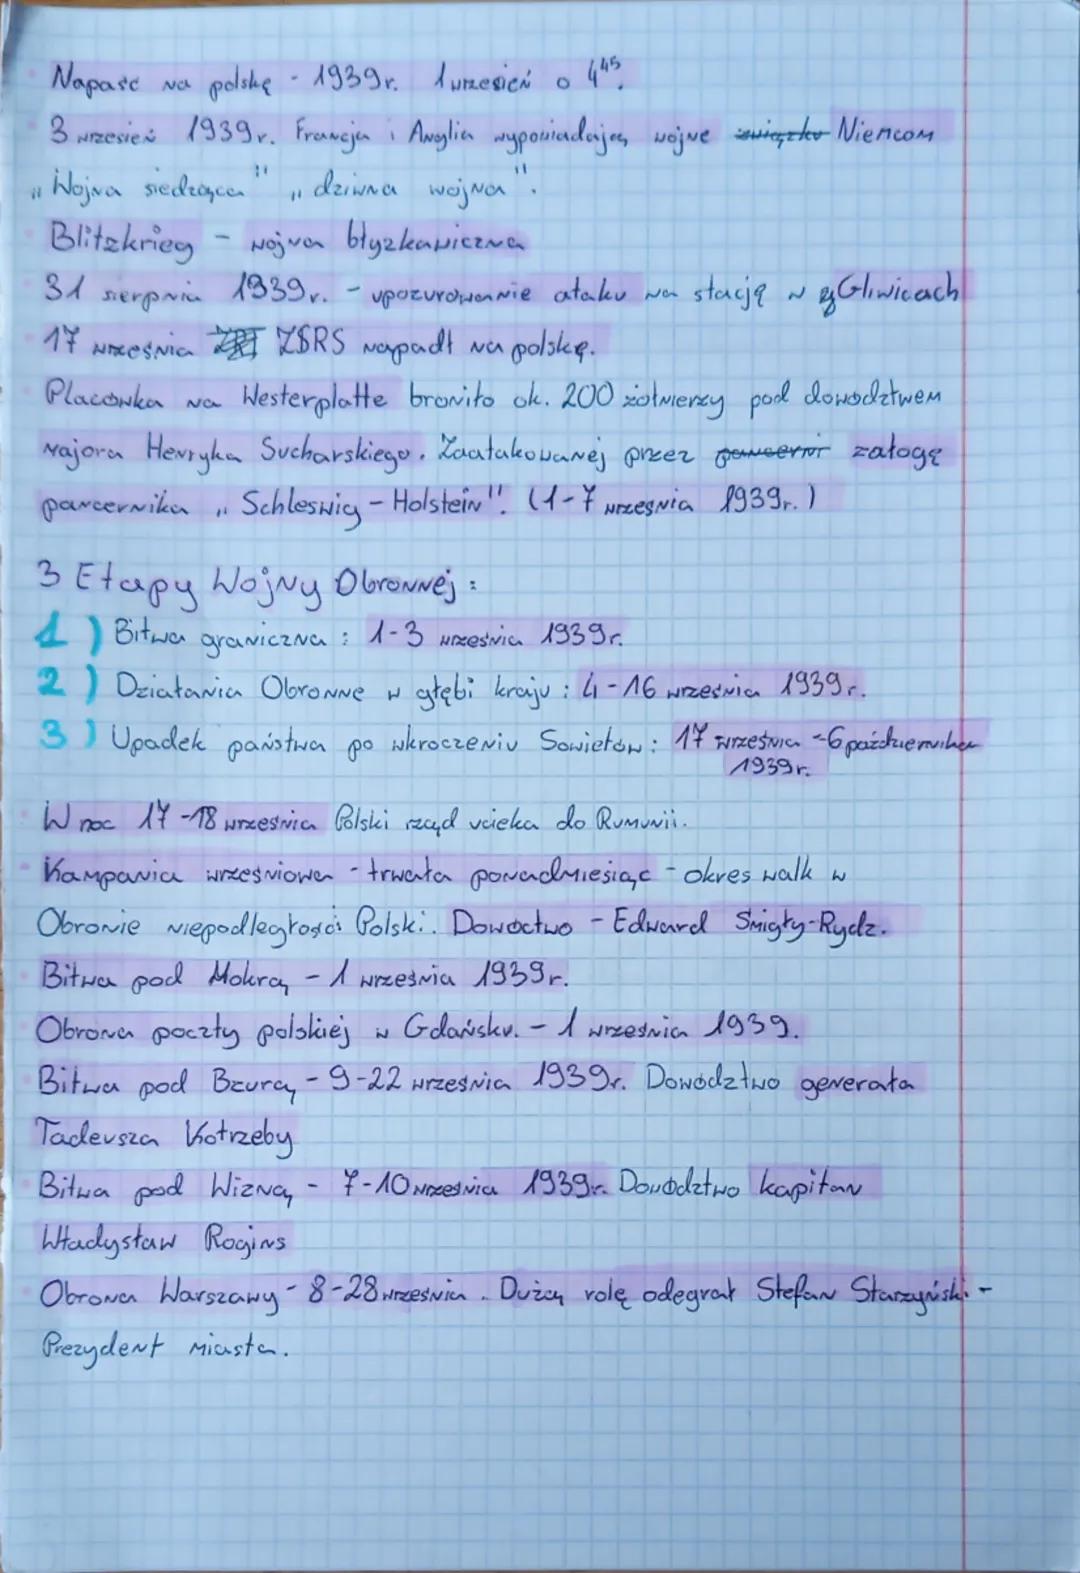 Napaść na polskę - 1939r. 1 wrzesień o 4⁴⁵.
3 wrzesień 1939r. Francja i Anglia wypowiadają wojnę związku Niemcom
"Wojna siedząca" "dziwna wojna".
Blitzkrieg - wojna błyzkawiczna
31 sierpnia 1939r. - upozurowannie ataku na stację w Gliwicach
17 września ZSRS napadł na polskę.
Placówka na Westerplatte broniło ok. 200 żołnierzy pod dowództwem
majora Henryka Sucharskiego. Zaatakowanej przez pancerni załogę
pancernika „Schleswig-Holstein". (1-7 września 1939r.)
3 Etapy Wojny Obronnej:
1) Bitwa graniczna: 1-3 września 1939r.
2) Działania Obronne w głębi kraju: 4-16 września 1939r.
3) Upadek państwa po wkroczeniu Sowietów: 17 września - 6 października
1939r.
W noc 17-18 września Polski rząd ucieka do Rumunii.
Kampania wrześniowa - trwała ponadmiesiąc - okres walk w
Obronie niepodległości Polski. Dowoctwo - Edward Śmigły-Rydz.
Bitwa pod Mokrą - 1 września 1939r.
Obrona poczty polskiej w Gdańsku. - 1 września 1939.
Bitwa pod Bzurą - 9-22 września 1939r. Dowództwo generała
Tadeusza Kotrzeby
Bitwa pod Wizną - 7-10 września 1939r. Dowództwo kapitan
Władysław Raginis
Obrona Warszawy - 8-28 września. Dużą rolę odegrał Stefan Starzyński -
Prezydent miasta.